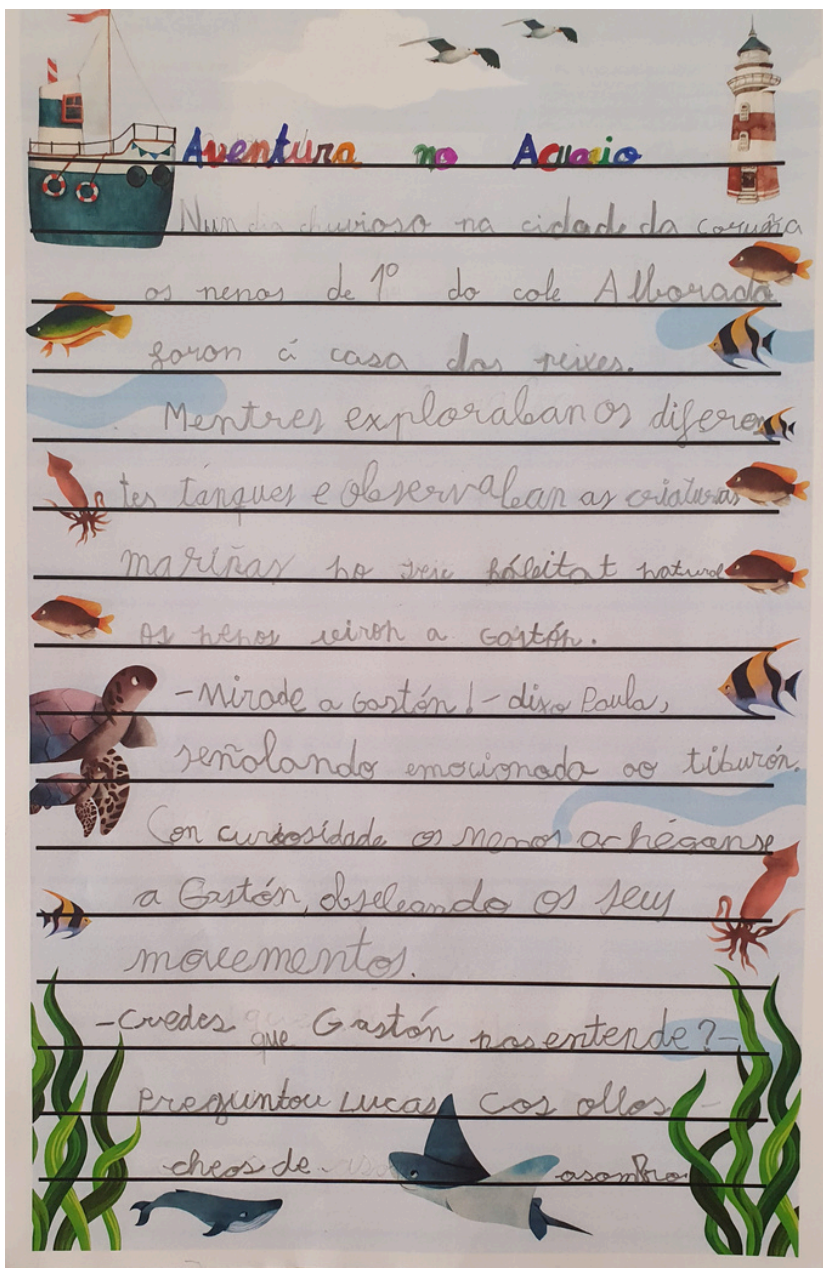 Aventura no Acuario
Nun día chuvioso na cidade da coruña
os nenos de 1º do cole Alborada
foron á casa dos peixes.
Mentres exploraban os diferen
tes tanques e observaban as criaturas
mariñas no seu hábitat natural
Os nenos viron a Gastón.
-Mirade a Gastón!- dixo Paula,
señalando emocionada ao tiburón.
Con curiosidade os nenos achéganse
a Gastón, obseleando os seus
movementos.
-Credes que Gastón nos entende?-
Preguntou Lucas cos ollos
cheos de asombro